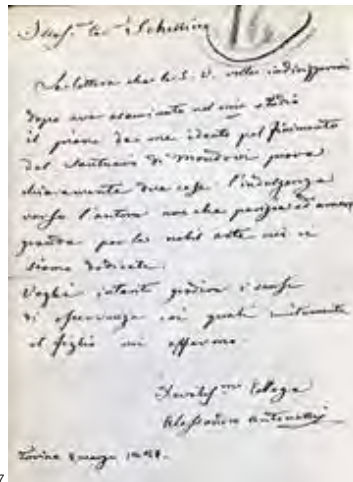 Schellino
La lettera che la S. V. volle indirizzarmi
dopo aver esaminato nel mio studio
il piano da me ideato pel finimento
del Santuario di Mondovì prova
chiaramente due cose l'indulgenza
verso l'autore non che
per la nobil arte cui ci
siamo dedicati.
Voglia intanto gradire i sensi
di osservanza coi quali
mi affermo
Collega
Alessandro Antonelli
Torino marzo
7